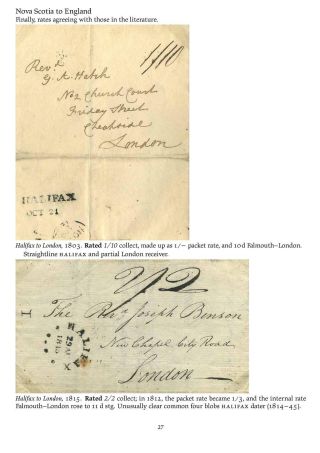 Nova Scotia to England
Finally, rates agreeing with those in the literature.
1/10
Revd.
G. A. Hatch
No 2 Church Court
Friday Street
Cheapside
London
HALIFAX
OCT 21
Halifax to London, 1803. Rated 1/10 collect, made up as 1/– packet rate, and 10d Falmouth–London.
Straightline HALIFAX and partial London receiver.
2/2
The Revd. Joseph Benson
New Chapel City Road
London
HALIFAX
1815
Halifax to London, 1815. Rated 2/2 collect; in 1812, the packet rate became 1/3, and the internal rate
Falmouth–London rose to 11 d stg. Unusually clear common four blobs HALIFAX dater (1814–45).
27